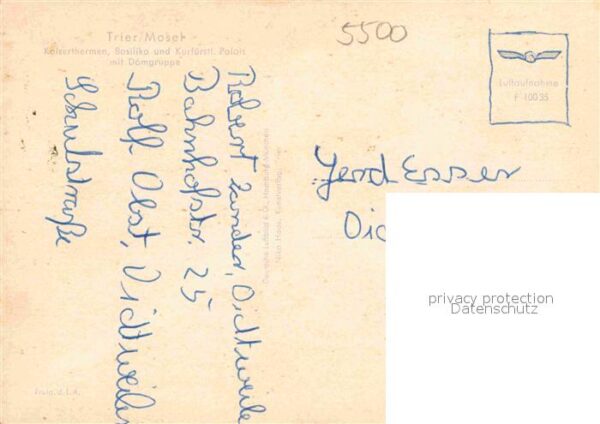 Trier/Mosel
Kaiserthermen, Basilika und Kurfürstl. Palais
mit Domgruppe
5500
Luftaufnahme
F 10035
Robert Zander, Dichtweile
Bahnhofstr. 25
Rolf Obst, Dichtweiler
Schulstraße
Gerd Esser
Dic
privacy protection
Datenschutz